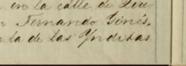 en la calle de
n Fernando Ginés,
ta de las Ynditas